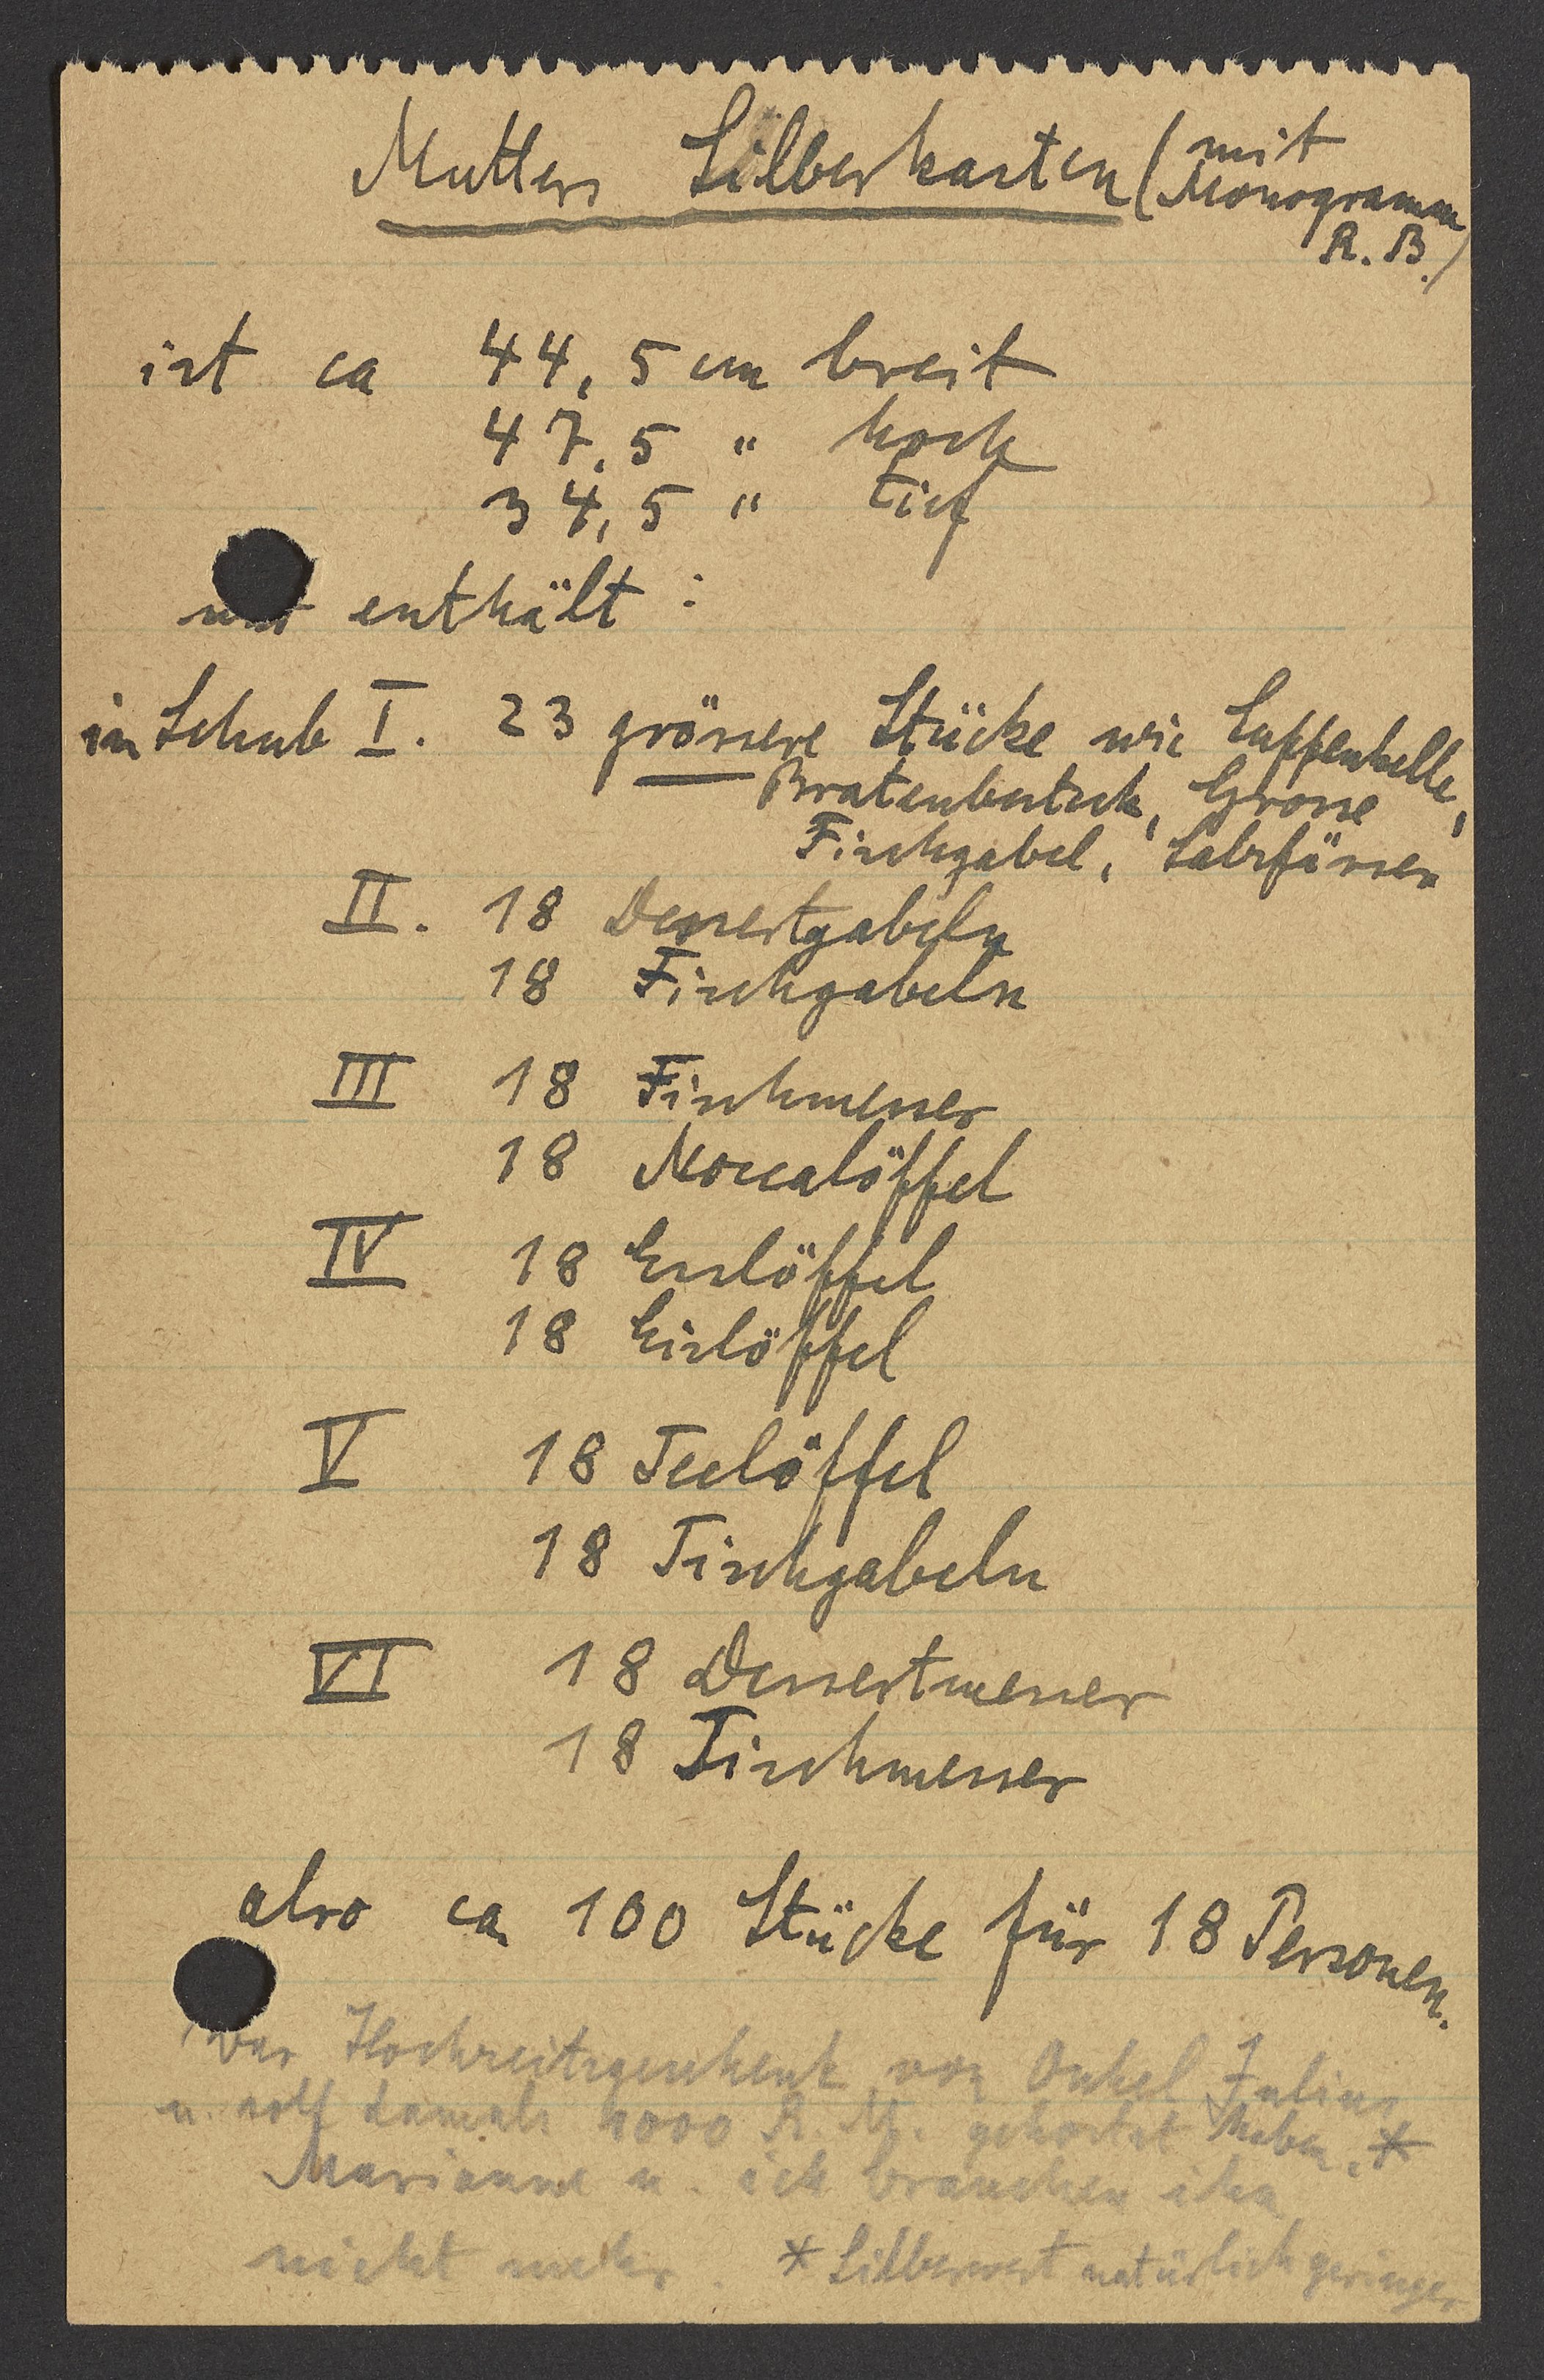 Mutters Silberkasten (mit
Monogramm
R. B.)
ist ca 44,5 cm breit
47,5 " hoch
34,5 " tief
und enthält :
in Schub I. 23 grössere Stücke wie Suppenkelle,
Bratenbesteck, Grosse
Fischgabel, Salzfässer
II. 18 Dessertgabeln
18 Fischgabeln
III 18 Fischmesser
18 Moccalöffel
IV 18 Esslöffel
18 Eislöffel
V 18 Teelöffel
18 Tischgabeln
VI 18 Dessertmesser
18 Tischmesser
also ca 100 Stücke für 18 Personen.
War Hochzeitsgeschenk von Onkel Julius
u. soll damals 4000 R. M. gekostet haben. *
Marianne u. ich brauchen ihn
nicht mehr. * Silberwert natürlich geringer